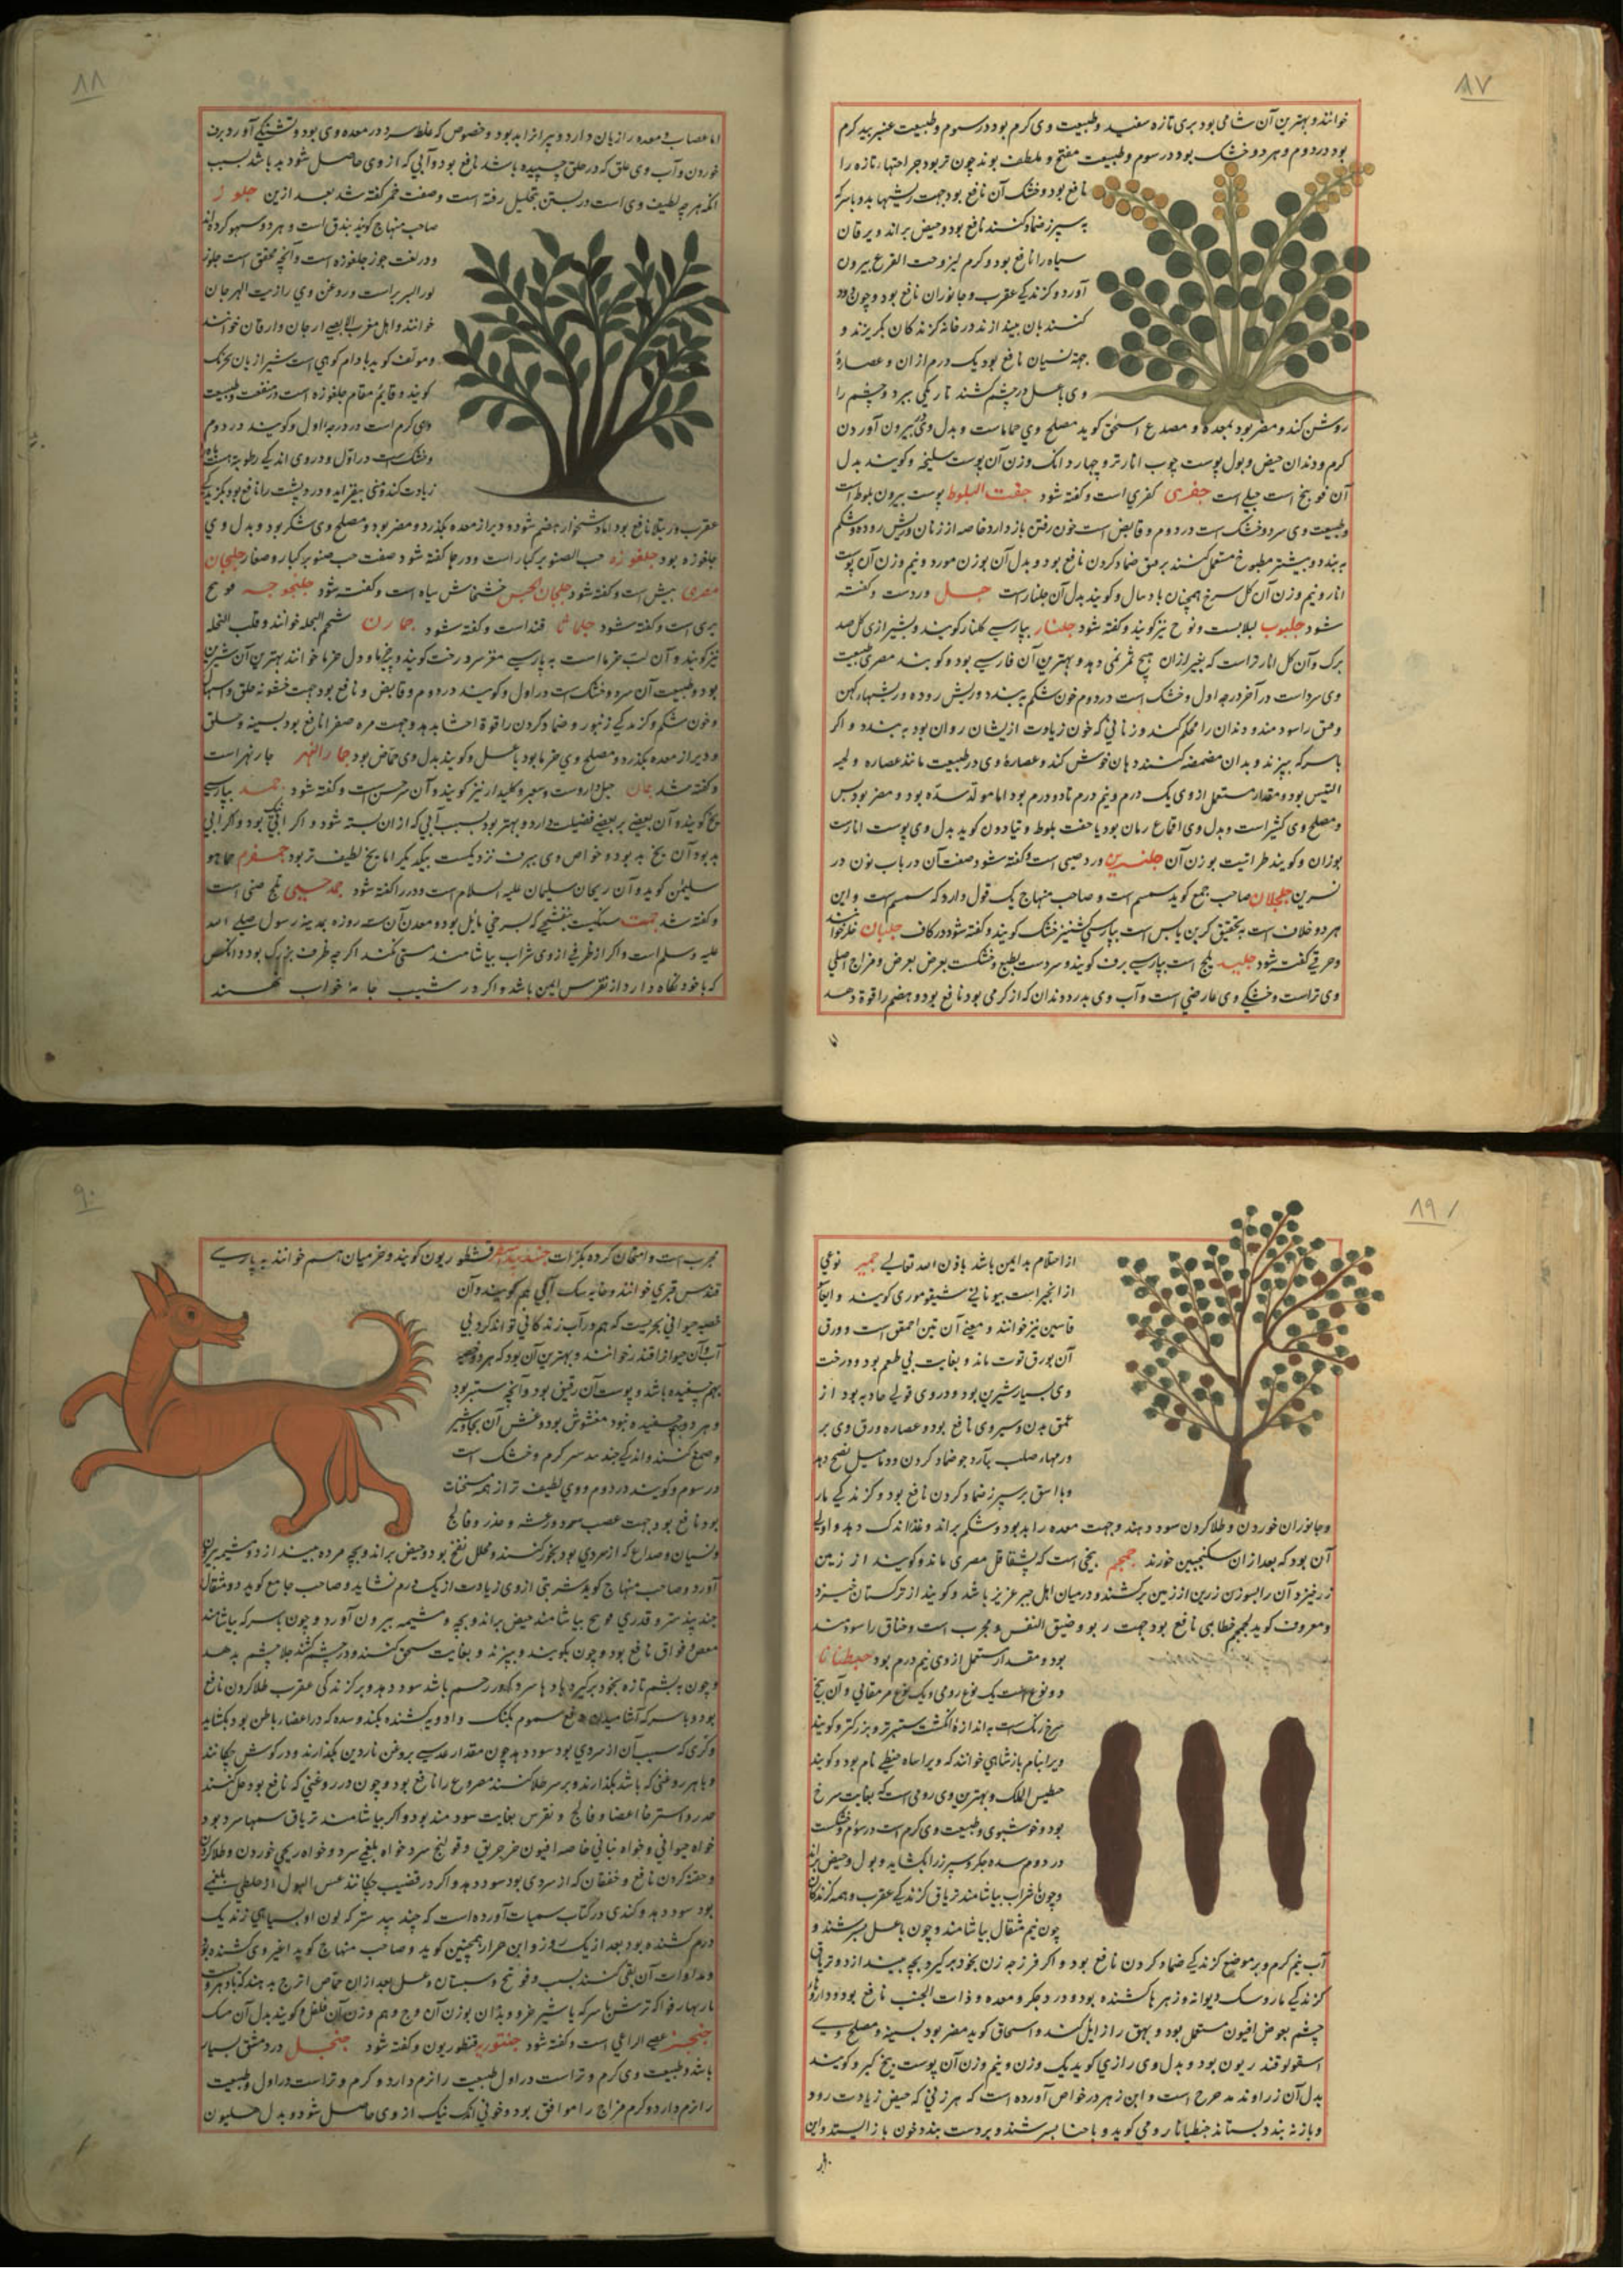 ٨٧
خوانند و بهترین آن شامی بود بری تازه سفید و طبیعت وی گرم بود در سوم و طبیعت
بود در دوم و هر دو خشک بود در سوم و طبیعت مفتح و ملطف بوند چون تر بود جراحتهاء تازه را
نافع بود و خشک آن نافع بود جهت ریشهاء بد و با سرکه
به سپرز ضماد کنند نافع بود و حیض براند و یرقان
سیاه را نافع بود و کرم لیز و حب القرع بیرون
آورد و گزندگی عقرب و جانوران نافع بود و چون دود
کنند بان بیندازند در خانه گزندگان بگریزند و
جهة نسیان نافع بود یک درم از ان و عصارهٔ
وی با عسل در چشم کشند تاریکی ببرد و چشم را
روشن کند و مضر بود بمعده و مصدع اسحق گوید مصلح وی حماماست و بدل وی بیرون آوردن
کرم و دندان حیض و بول پوست چوب انار تر و چهار دانک وزن آن پوست سلیخه و گویند بدل
آن فوینج است جبلی است جفری کفری است و گفته شود جفت البلوط پوست بیرون بلوط است
و طبیعت وی سرد و خشک است در دوم و قابض است خون رفتن باز دارد خاصه از زنان و ریش روده و شکم
به بندد و بیشتر مطبوخ مستعمل کنند بر فتق ضماد کردن نافع بود و بدل آن بوزن مورد و نیم وزن آن پوست
انار و نیم وزن آن گل سرخ همچنان باد سال و گویند بدل آن جلنار است جل وردست و گفته
شود جلبوب لبلابست و نوح نیز گویند و گفته شود جلنار بپارسی گلنار گویند و بشیرازی گل صد
برک و آن گل انار نر است که بغیر از ان هیچ ثمر نمی دهد و بهترین آن فارسی بود و گویند مصری طبیعت
وی سرد است در آخر درجه اول و خشک است در دوم خون شکم به بندد و ریش روده و ریشهاء کهن
و فتق را سود مند و دندان را محکم کند و زنانی که خون زیادت از یشان روان بود به بندد و اگر
با سرکه بپزند و بدان مضمضه کنند دهان خوش کند و عصارهٔ وی در طبیعت مانند عصاره لحیه
التیس بود و مقدار مستعمل از وی یک درم و نیم درم تا دو درم بود اما مولد سده بود و مضر بود بس
و مصلح وی کثیراست و بدل وی اقماع رمان بود یا جفت بلوط و تیادون گوید بدل وی پوست انارست
بوزان و گویند طراثیت بوزن آن جلنسرین ورد صینی است و گفته شود صفت آن در باب نون در
نسرین جلجلان صاحب جمع گوید سمسم است و صاحب منهاج یک قول دارد که سمسم است و این
هر دو خلاف است به تحقیق کزبن یابس است بپارسی کشنیز خشک گویند و گفته شود در کاف جلبان خلر خوانند
و حرفی گفته شود جلید ثلج است بپارسی برف گویند و سردست بطبع و خشکست بعرض و مزاج اصلی
وی تر است و خشکی وی عارضی است و آب وی بدرد دندان که از گرمی بود نافع بود و هضم را قوة دهد
٨٨
اما عصاب و معده را زیان دارد و پیرانرا بد بود و خصوص که غلط سرد در معده وی بود و تشنگی آورد برف
خوردن و آب وی علق که در حلق چسپیده باشد نافع بود و آبی که از وی حاصل شود بد باشد بسبب
انکه هر چه لطیف وی است در بستن بتحلیل رفته است و صفت خمر گفته شد بعد ازین جلوز
صاحب منهاج گوید بندق است و هر دو سهو کرده اند
و در لغت جوز جلغوزه است و آنچه محقق است جلوز
لوز البر براست و روغن وی را زیت الهرجان
خوانند و اهل مغرب الاقصی ارجان وارقان خوانند
و مولف گوید بادام کوهی است شیرازیان بخرک
گویند و قایم مقام جلغوزه است در منفعت و طبیعت
وی گرم است در درجه اول و گویند در دوم
و خشکست در اول و در وی اندکی رطوبة هست باه
زیادت کند و منی بیفزاید و درد پشت را نافع بود بگزیدگی
عقرب و رتیلا نافع بود اما دشخوار هضم شود و دیر از معده بگذرد و مضر بود و مصلح وی شکر بود و بدل وی
جلغوزه بود جلغوزه حب الصنوبر کبار است و در حا گفته شود صفت حب صنوبر کبار و صغار جلجان
مصری بیش است و گفته شود جلجان الحبش خشخاش سیاه است و گفته شود جلنجوجه فودنج
بری است و گفته شود جلاب قند است و گفته شود جمارن شحم النخله خوانند و قلب النخله
نیز گویند و آن لب خرما است به پارسی مغز سر درخت گویند و پنیر خرما و دل خرما خوانند بهترین آن شیرین
بود و طبیعت آن سرد و خشک است در اول و گویند در دوم و قابض و نافع بود جهت خشونة حلق و اسهال
و خون شکم و گزندگی زنبور و ضماد کردن را قوة احشا بدهد و جهت مره صفرا نافع بود بسینه و حلق
و دیر از معده بگذرد و مصلح وی خرما بود با عسل و گویند بدل وی حماض بود جار النهر جار نهر است
و گفته شد جمان جبل دار وست و سعبر و کلیدار نیز گویند و آن سرحس است و گفته شود جمد بپارسی
یخ گویند و آن بعضی بر بعضی فضیلت دارد و بهتر بود بسبب آبی که از ان بسته شود و اگر آبی نیک بود و اگر آبی
بد بود آن یخ بد بود و خواص وی ببرف نزدیکست بیکدیگر اما یخ لطیف تر بود جمسفرم جماهو
سلیمن گوید و آن ریحان سلیمان علیه السلام است و در را گفته شود جمد چینی ثلج صینی است
و گفته شد جمست سنگیست بنفشجی که بسرخی مایل بود و معدن آن سه روزه بمدینه رسول صلی الله
علیه وسلم است و اگر از ظرفی از وی شراب بیاشامند مستی نکند اگر چه ظرف بزرگ بود و دانکس
که با خود نگاه دارد از نقرس ایمن باشد و اگر در شیب جامهٔ خواب نهند
٨٩
از احتلام بد ایمن باشد باذن الله تعالی جمیز نوعی
از انجیر است بیونانی شیقوموری گویند و ایضا
فاسین نیز خوانند و معنی آن تین احمق است و ورق
آن بورق توت ماند و بغایت بی طعم بود و درخت
وی بسیار شیرین بود و در وی قولی حادبه بود از
عمق بدن و سیروی نافع بود و عصاره ورق وی بر
ورمهاء صلب بیارد چو ضماد کردن و دمامیل نضج دهد
و با اشق بر سپرز ضماد کردن نافع بود و گزندگی مار
و جانوران خوردن و طلا کردن سود دهند و جهت معده را بد بود و شکم براند و غذا اندک دهد و اولی
آن بود که بعد از ان سکنجبین خورند جمجم بیخی است که بشقاقل مصری ماند و گویند از زمین
زر خیزد و آن را بسوزن زرین از زمین برکشند و در میان اهل جبر عزیز باشد و گویند از ترکستان خیزد
و معروف گوید بجمجم خطایی نافع بود جهت ربو و ضیق النفس و مجرب است و خناق را سود مند
بود و مقدار مستعمل از وی نیم درم بود جنطیانا
دو نوع است یک نوع رومی و یک نوع مرمقانی و آن بیخ
سرخ رنگ است به اندازهٔ انگشت ستبر تر و بزرگتر و گویند
ویرا بنام پادشاهی خوانند که ویرا ساه جنطی نام بود و گویند
جنطیس الملک و بهترین وی رومی است که بغایت سرخ
بود و خوشبوی و طبیعت وی گرم است در سوم و خشکست
در دوم سده جگر و سپرز را بگشاید و بول و حیض براند
و چون با شراب بیاشامند تریاق گزندگی عقرب و همه گزندگان
چون نیم مثقال بیاشامند و چون با عسل بسرشند و
آب نیم گرم و بر موضع گزندگی ضماد کردن نافع بود و اگر فرزجه زن بخود برگیرد بچه بیندازد و تریاق
گزندگی مار و سک دیوانه و زهرها کشنده بود و درد جگر و معده و ذات الجنب نافع بود و داروهاء
چشم بعوض افیون مستعمل بود و بهق را زایل کند و اسحاق گوید مضر بود بسینه و مصلح وی
اسقولوقند ریون بود و بدل وی رازی گوید یک وزن و نیم وزن آن پوست بیخ کبر و گویند
بدل آن زراوند مدحرج است و ابن زهر در خواص آورده است که هر زنی که حیض زیادت رود
و باز نه بندد بستاند جنطیانا رومی گوید و با حنا بسرشند و بر دست بندد خون باز ایستد و این
٩٠
مجرب است و امتحان کرده بکرات جندبیدستر قشطو ریون گویند و خزمیان اسم خوانند به پارسی
قندس قیری خوانند و خایه سک آبی هم گویند و آن
خصیه حیوانی بحریست که هم در آب زندگانی تواند کرد بی
آب و آن حیوانرا قندز خوانند و بهترین آن بود که هر دو خصیه
بهم چسپیده باشد و پوست آن رقیق بود و آنچه ستبر بود
و هر دو بهم چسپیده نبود مغشوش بود و غش آن بجاوشیر
و صمغ کنند و اندکی جند بیدستر گرم و خشک است
در سوم و گویند در دوم و وی لطیف تر از همه مسخنات
بود نافع بود جهت عصب سرد و رعشه و خدر و فالج
و نسیان و صداع که از سردی بود بخور کنند و محلل نفخ بود و حیض براند و بچه مرده بیندازد و مشیمه بیرون
آورد و صاحب منهاج گوید شربتی از وی زیادت از یک درم نشاید و صاحب جامع گوید دو مثقال
جند بیدستر و قدری فودنج بیاشامند حیض براند و بچه و مشیمه بیرون آورد و چون با سرکه بیاشامند
مغص و فواق نافع بود و چون بکوبند و بپزند و بغایت سحق کنند و در چشم کشند جلاء چشم بدهد
و چون به پشم تازه بخود برگیرد باد هاء سرد که در رحم باشد سود دهد و بر گزندگی عقرب طلا کردن نافع
بود و با سرکه آشامیدن دفع سموم بکند و ادویه کشنده بکند و سده که در اعضاء باطن بود بگشاید
و کری که سبب آن از سردی بود سود دهد چون مقدار عدسی بروغن ناردین بگذارند و در گوش چکانند
و با هر روغنی که باشد بگذارند و بر سر طلا کنند مصروع را نافع بود و چون در روغنی که نافع بود حل کنند
خدر و استرخاء اعضا و فالج و نقرس بغایت سود مند بود و اگر بیاشامند تریاق سمهاء سرد بود
خواه حیوانی و خواه نباتی خاصه افیون و خربق و قولنج سرد خواه بلغمی سرد و خواه ریحی خوردن و طلا کردن
و حقنه کردن نافع و خفقان که از سردی بود سود دهد و اگر در قضیب چکانند عسر البول از خلطی بلغمی
بود سود دهد و کندی در کتاب سمیات آورده است که چند بیدستر که لون او بسیاهی زند یک
درم کشنده بود بعد از یک روز و ابن جزار همچنین گوید و صاحب منهاج گوید اغبر وی کشنده بود
و مداوات آن بقی کنند بسبب و فودنج و سبستان و عسل بعد از ان حماض اترج بدهند که پادزهر وی است
بدل آن فلفل گویند بدل آن مسک
جنجر عصی الراعی است و گفته شود جنتوریه قنطوریون و گفته شود جنجل در دمشق بسیار
باشد و طبیعت وی گرم و تر است در اول طبیعت را نرم دارد و گرم و تر است در اول و طبیعت
را نرم دارد و گرم مزاج را موافق بود و خونی اندک نیک از وی حاصل شود و بدل هلیون